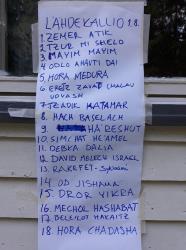 LAHDEKALLIO 2.8.
1. ZEMER ATIK
2. TZUR MI SHELO
3. MAYIM MAYIM
4 ODLO AHAVTI DAI
5. HORA MEDURA
6. ERETZ ZAVAT CHALAV
UDVASH
7. TZADIK KATAMAR
8. HACH BASELACH
9. HARESHUT
10. SIMHAT HE'AMEL
11. DEBKA DALIA
12. DAVID MELECH ISRAEL
13. RAKEFET -
14 OD JISHAMA
15. DROR YIKRA
16. MECHOL HASHABAT
17. BELEILOT HAKAITZ
18. HORA CHADASHA